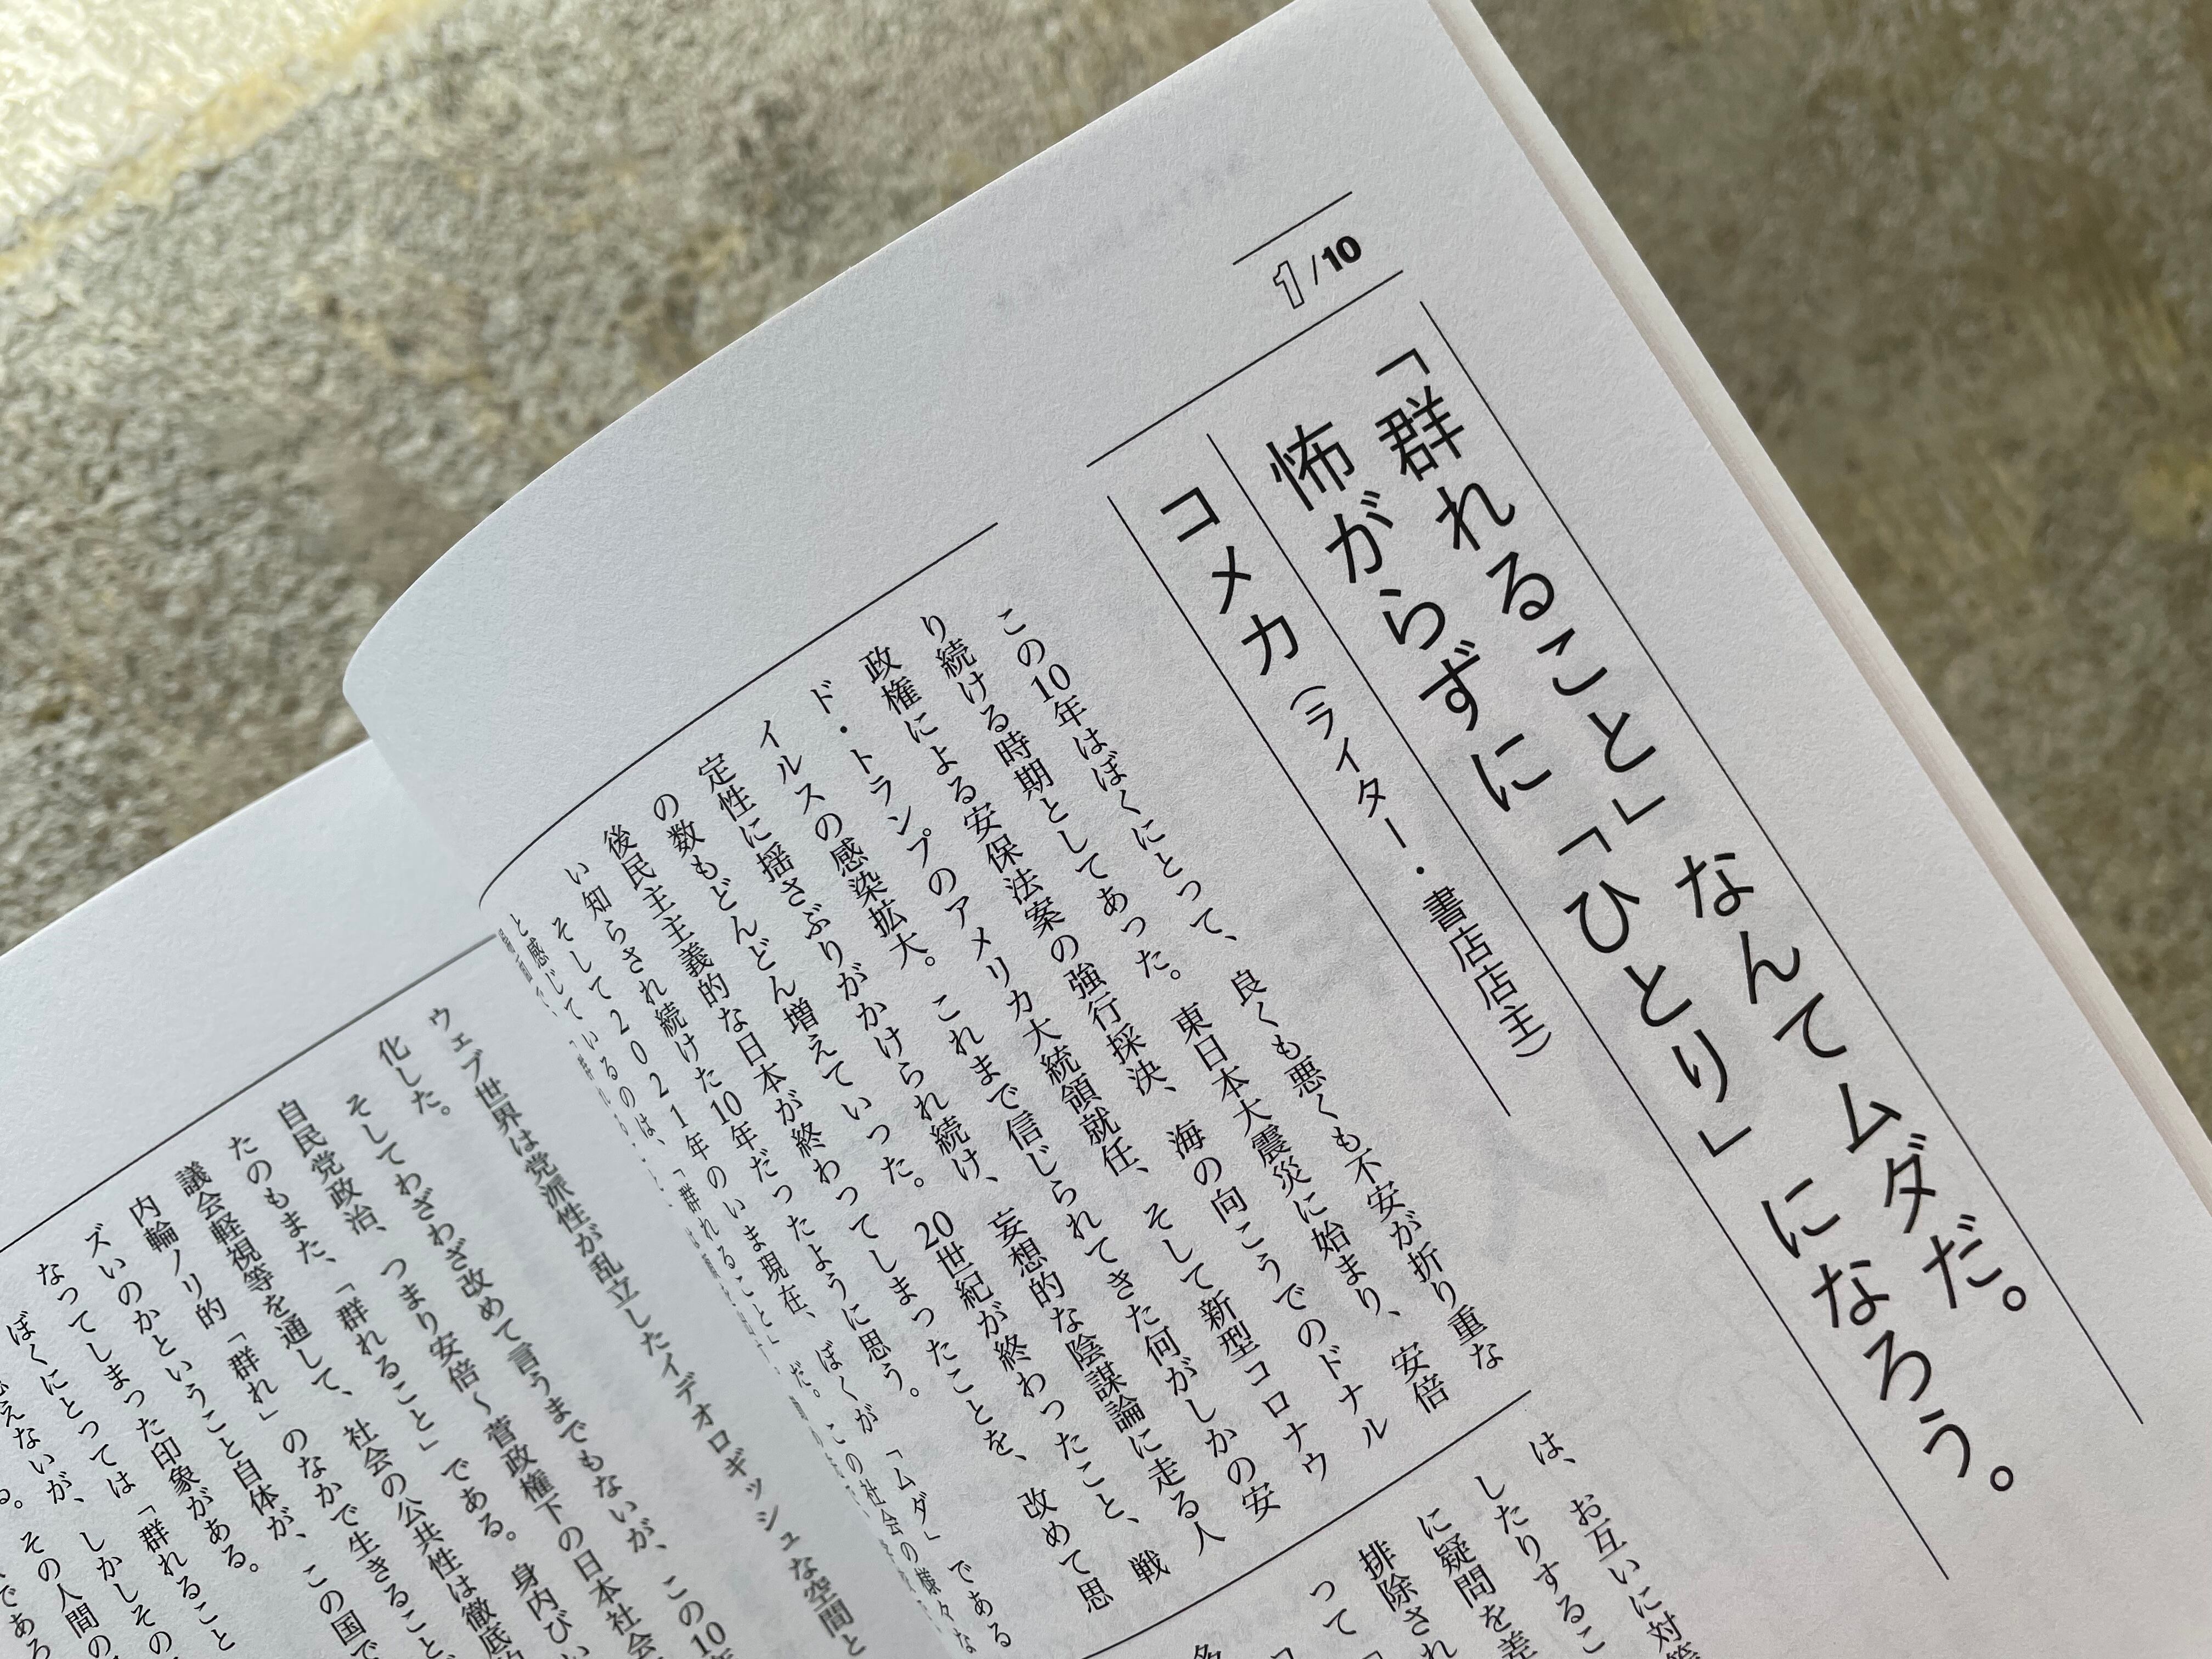 1/10
「群れること」なんてムダだ。
怖がらずに「ひとり」になろう。
コメカ（ライター・書店店主）
この10年はぼくにとって、良くも悪くも不安が折り重な
り続ける時期としてあった。東日本大震災に始まり、安倍
政権による安保法案の強行採決、海の向こうでのドナル
ド・トランプのアメリカ大統領就任、そして新型コロナウ
イルスの感染拡大。これまで信じられてきた何がしかの安
定性に揺さぶりがかけられ続け、妄想的な陰謀論に走る人
の数もどんどん増えていった。20世紀が終わったこと、戦
後民主主義的な日本が終わってしまったことを、改めて思
い知らされ続けた10年だったように思う。
そして2021年のいま現在、ぼくが「ムダ」である
と感じているのは、「群れること」だ。この社会の様々な
は、お互いに対等
したりするこ
に疑問を差
排除され
って
ウェブ世界は党派性が乱立したイデオロギッシュな空間と
化した。
そしてわざわざ改めて言うまでもないが、この10年
自民党政治、つまり安倍〜菅政権下の日本社会
たのもまた、「群れること」である。身内びい
議会軽視等を通して、社会の公共性は徹底的
内輪ノリ的「群れ」のなかで生きること
ズいのかということ自体が、この国で
なってしまった印象がある。
ぼくにとっては「群れること
えないが、しかしその
その人間の
であろ